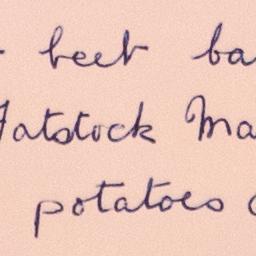 beet ba
Fatstock Ma
potatoes